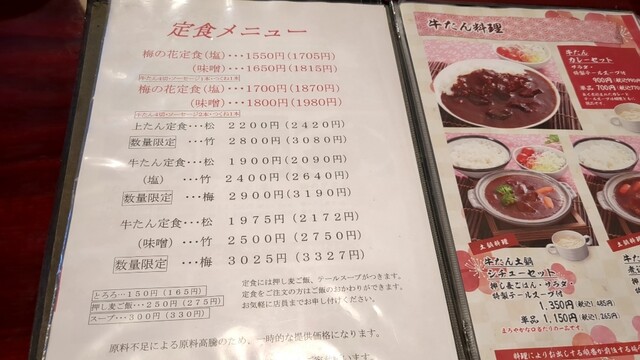 定食メニュー
梅の花定食(塩)・・・1550円(1705円)
(味噌)・・・1650円(1815円)
梅の花定食(塩)・・・1700円(1870円)
(味噌)・・・1800円(1980円)
上たん定食・・・松 2200円(2420円)
数量限定・・・竹 2800円(3080円)
牛たん定食・・・松 1900円(2090円)
(塩)・・・竹 2400円(2640円)
数量限定・・・梅 2900円(3190円)
牛たん定食・・・松 1975円(2172円)
(味噌)・・・竹 2500円(2750円)
数量限定・・・梅 3025円(3327円)
とろろ・・・150円(165円)
押し麦ご飯・・・250円(275円)
スープ・・・300円(330円)
定食には押し麦ご飯、テールスープがつきます。
定食をご注文の方はご飯のおかわりができます。
お気軽に店員までお申し付けください。
原料不足による原料高騰のため、一時的な提供価格になります。
牛たん料理
牛たん
カレーセット
サラダ・
特製テールスープ付
900円
単品 700円
土鍋料理
牛たん土鍋
シチューセット
押し麦ごはん・サラダ・
特製テールスープ付
1,350円(税込1,485円)
単品 1,150円